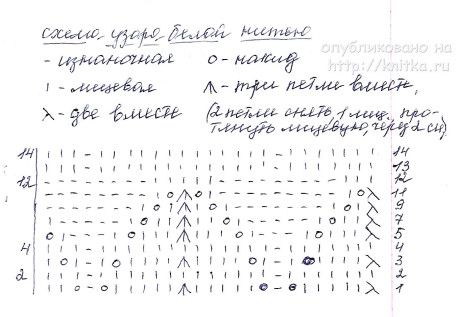 схема узора белой нитью
опубликовано на
http://knitka.ru
- - изнаночная о - накид
ı - лицевая ⋀ - три петли вместе,
λ - две вместе (2 петли снять, 1 лиц., про-
тянуть лицевую, через 2 сн)
14 14
13
12 12
11
9
7
5
4 4
3
2 2
1